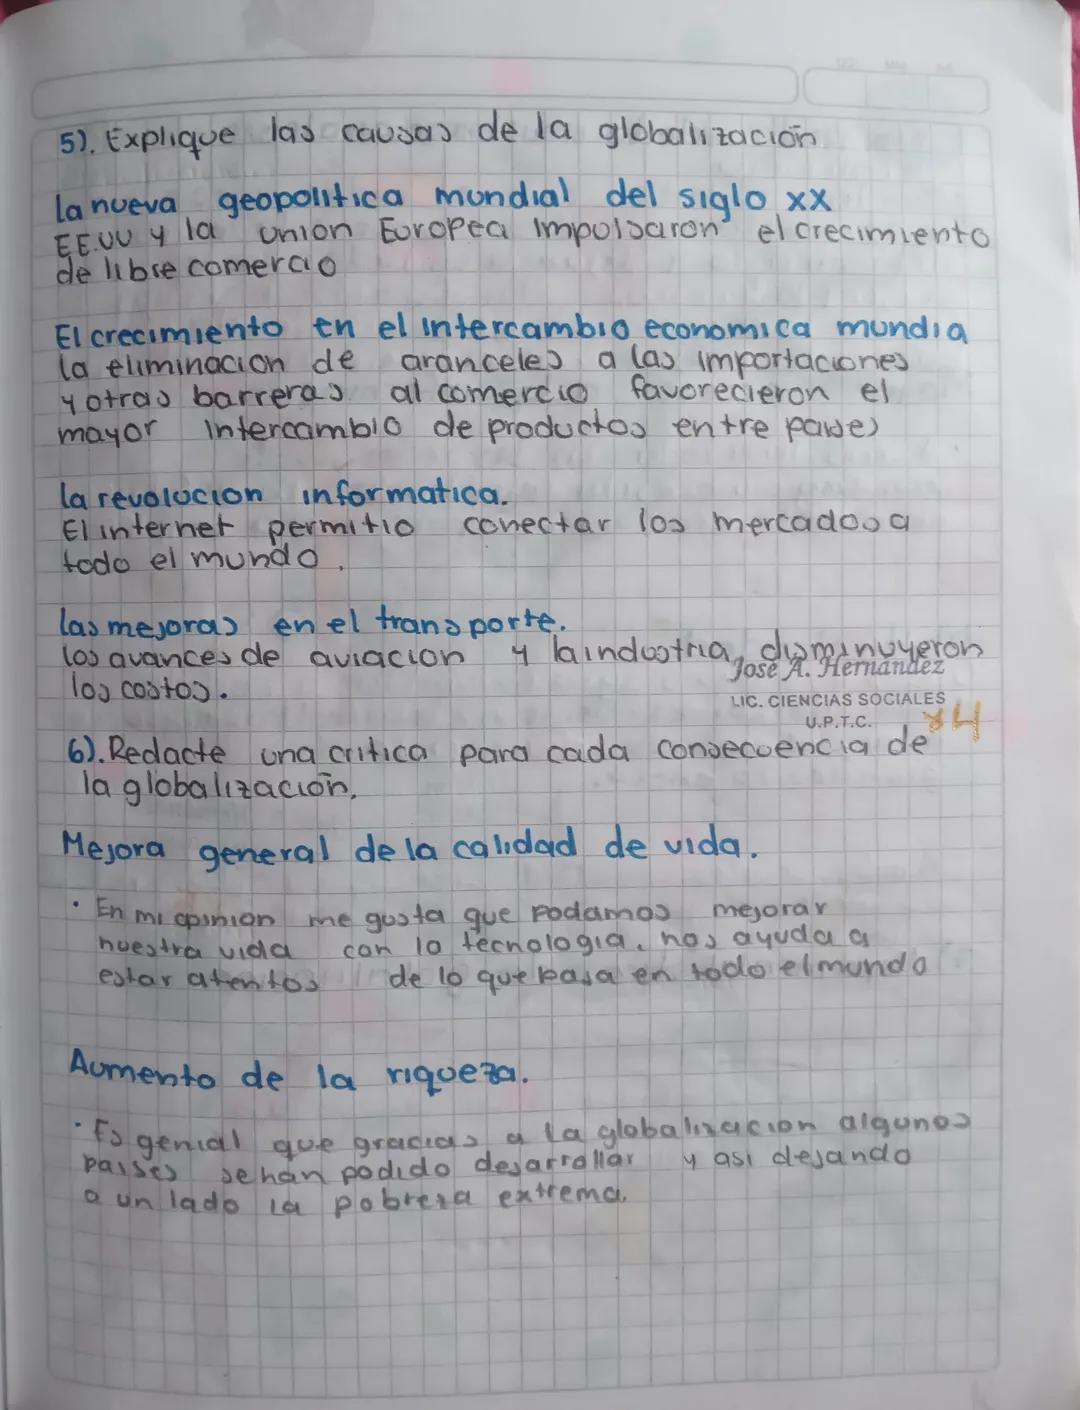 5). Explique las causas de la globalización
la nueva geopolitica mundial del siglo xx
EE.UU y la union Europea Impulsaron el crecimiento
de libre comercio
El crecimiento en el intercambio economica mundia
la eliminacion de aranceles a las importaciones
y otras barreras al comercio favorecieron el
mayor intercambio de productos entre paises
la revolucion informatica.
El internet permitio conectar los mercados a
todo el mundo.
las mejoras en el transporte.
los avances de aviacion y la industria, disminuyeron
los costos.
José A. Hernández
LIC. CIENCIAS SOCIALES
U.P.T.C.
6). Redacte una critica para cada consecuencia de
la globalización.
Mejora general de la calidad de vida.
• En mi opinion me gusta que podamos mejorar
nuestra vida con la tecnologia, nos ayuda a
estar atentos de lo que pasa en todo el mundo
Aumento de la riqueza.
• Es genial que gracias a la globalizacion algunos
paises se han podido desarrollar y asi dejando
a un lado la pobreza extrema.